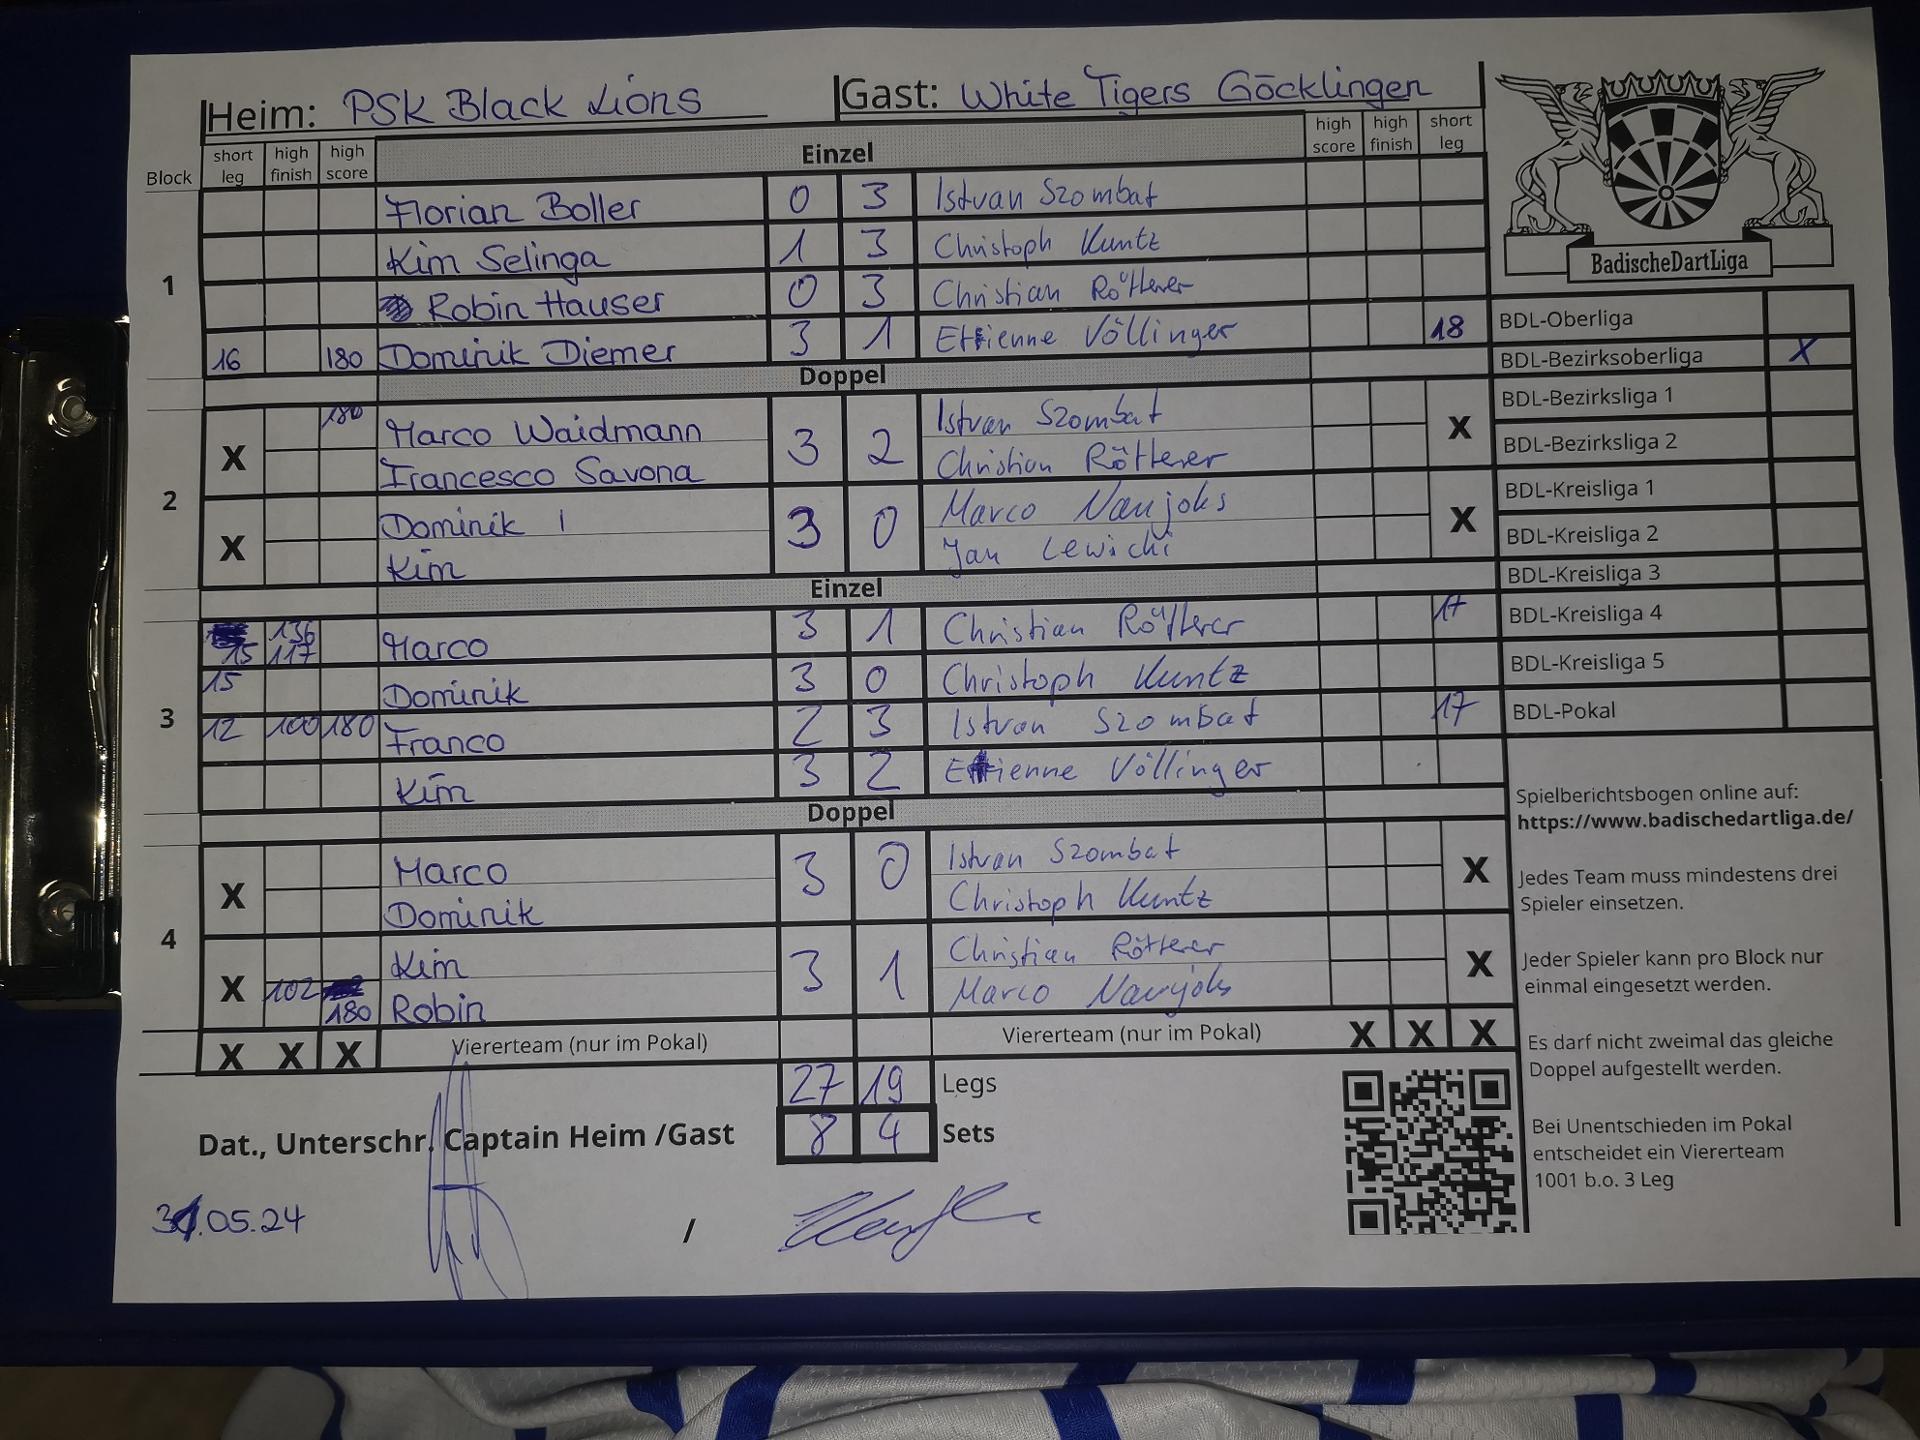 Heim: PSK Black Lions Gast: White Tigers Göcklingen
Block short leg high finish high score Einzel high score high finish short leg
1
Florian Boller 0 3 Istvan Szombat
Kim Selinga 1 3 Christoph Kuntz
Robin Hauser 0 3 Christian Rötterer
16 180 Dominik Diemer 3 1 Etienne Völlinger 18
Doppel
2
X 180 Marco Waidmann 3 2 Istvan Szombat X
Francesco Savona Christian Rötterer
X Dominik 3 0 Marco Naujoks X
Kim Jan Lewicki
Einzel
3
15 136 117 Marco 3 1 Christian Rötterer 17
15 Dominik 3 0 Christoph Kuntz
12 100 180 Franco 2 3 Istvan Szombat 17
Kim 3 2 Etienne Völlinger
Doppel
4
X Marco 3 0 Istvan Szombat X
Dominik Christoph Kuntz
X Kim 3 1 Christian Rötterer X
102 180 Robin Marco Naujoks
X X X Viererteam (nur im Pokal) Viererteam (nur im Pokal) X X X
27 19 Legs
Dat., Unterschr. Captain Heim /Gast 8 4 Sets
31.05.24 /
BadischeDartLiga
BDL-Oberliga
BDL-Bezirksoberliga X
BDL-Bezirksliga 1
BDL-Bezirksliga 2
BDL-Kreisliga 1
BDL-Kreisliga 2
BDL-Kreisliga 3
BDL-Kreisliga 4
BDL-Kreisliga 5
BDL-Pokal
Spielberichtsbogen online auf:
https://www.badischedartliga.de/
Jedes Team muss mindestens drei
Spieler einsetzen.
Jeder Spieler kann pro Block nur
einmal eingesetzt werden.
Es darf nicht zweimal das gleiche
Doppel aufgestellt werden.
Bei Unentschieden im Pokal
entscheidet ein Viererteam
1001 b.o. 3 Leg